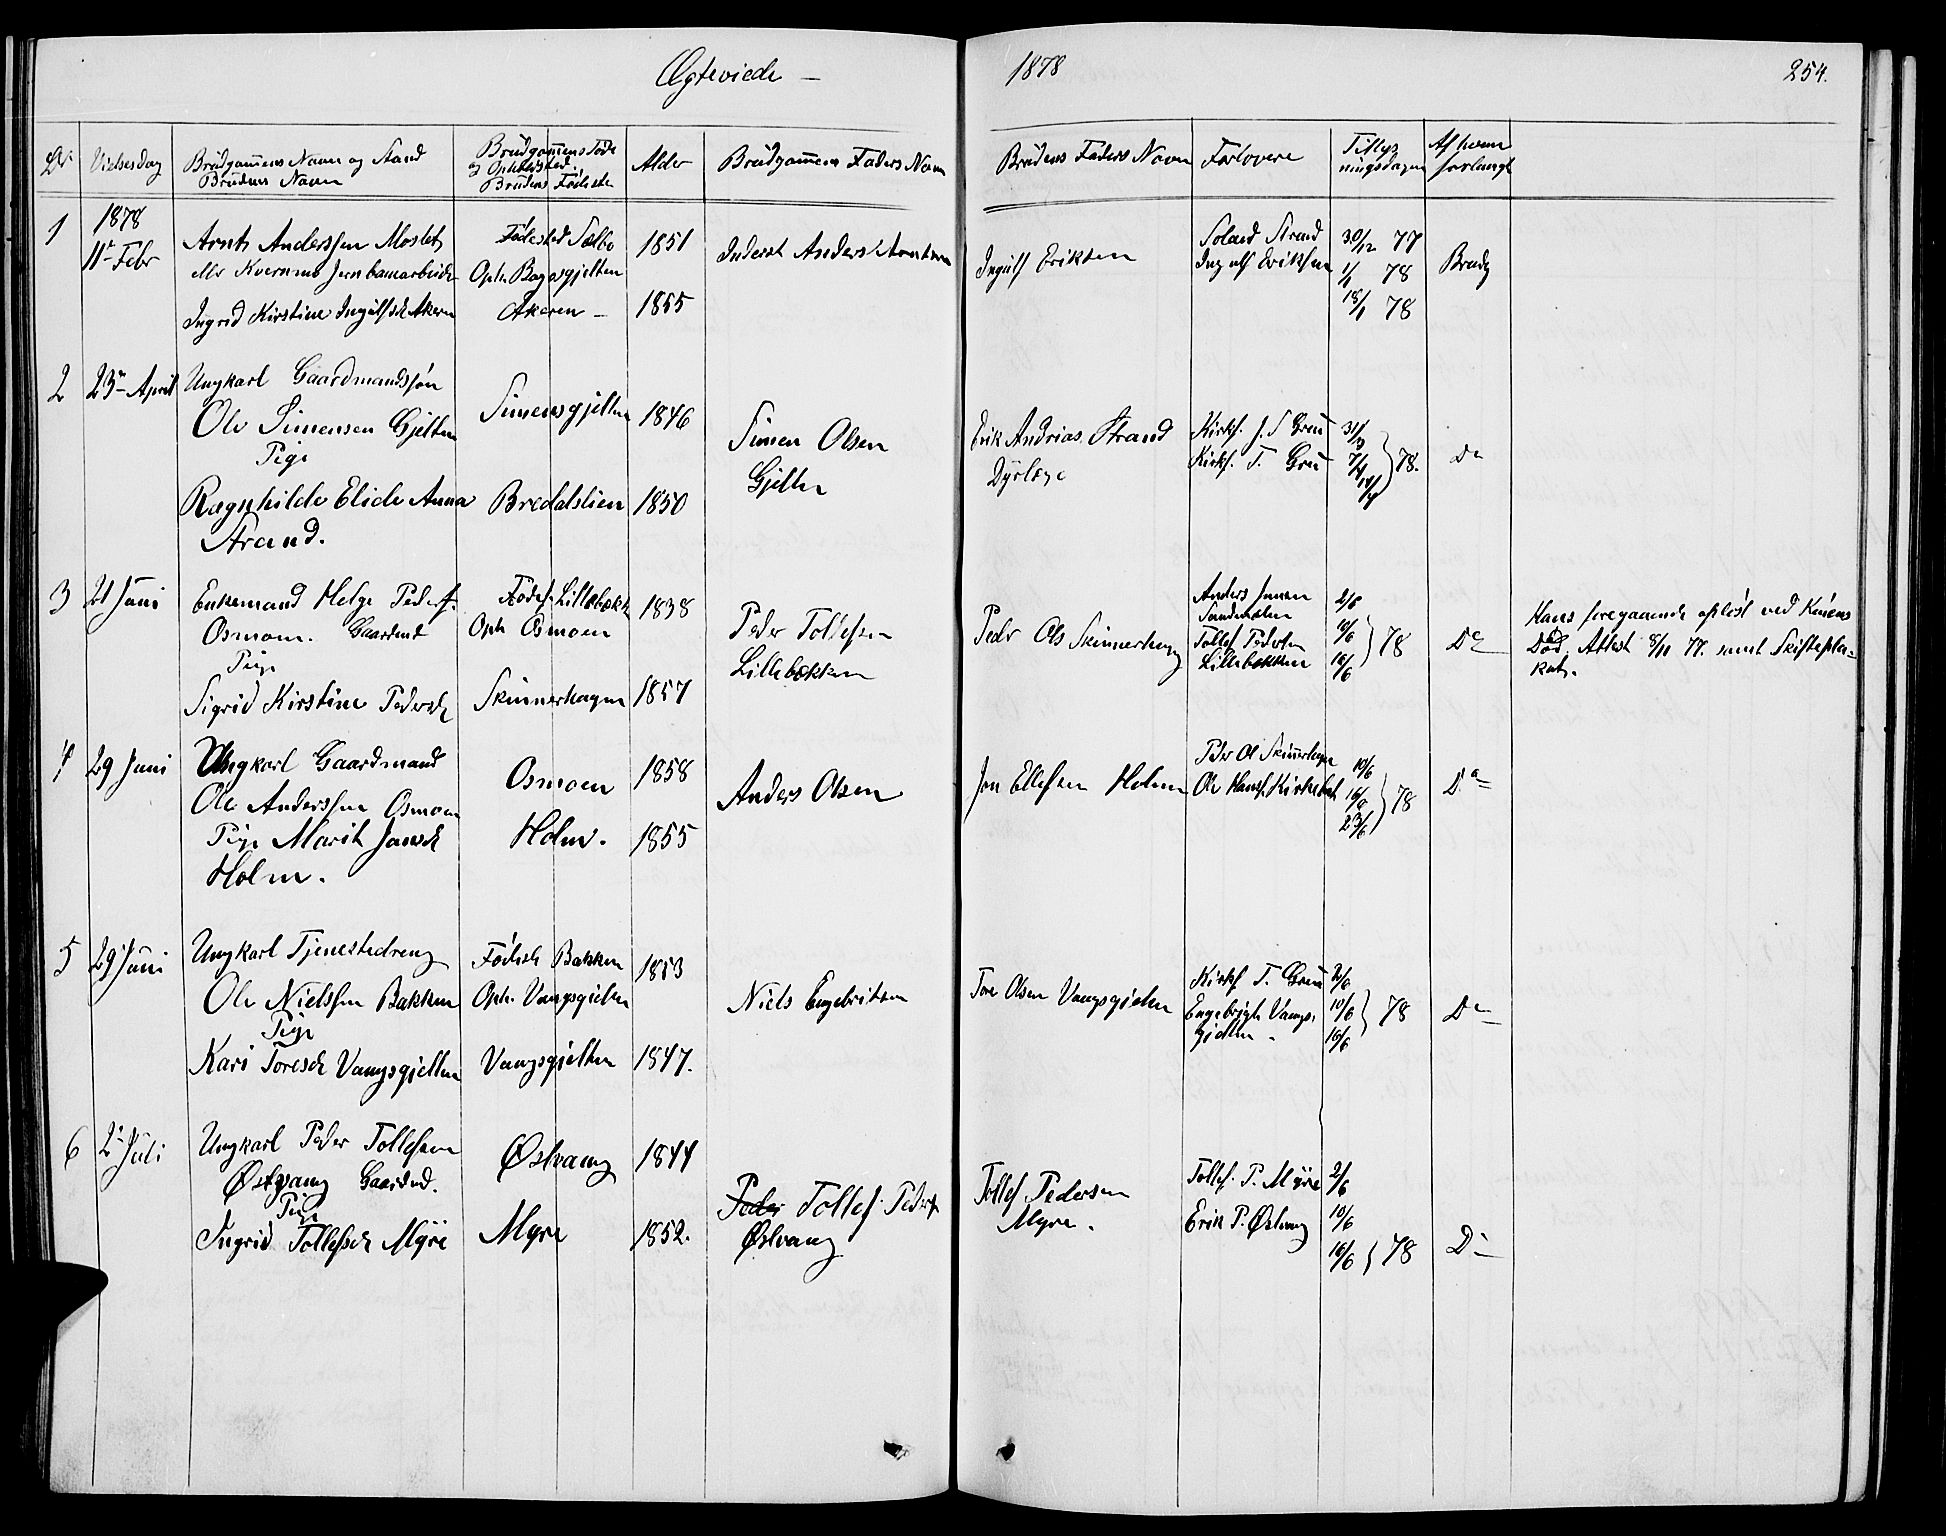 Ægteviede –
1878
254.
No
Vielsesdag
Brudgommens Navn og Stand
Brudens Navn
Brudgommens Føde
og Opholdsted
Brudens Fødeste
Alder
Brudgommens Faders Navn
Brudens Faders Navn
Forlovere
Tillys
ningsdagen
Af hvem
forlangt
1
1878
11te Febr
Arnt Anderssen Moslet
eller Kvernmo Jernbanearbeider
Ingrid Kirstine Ingulfsdt Akeren
Fødested Sælbo
Oph. Bagsgjelten
Akeren –
1851
1855
Inderst Anders Arntsen
Ingulf Eriksen
Soland Strand
Ingulf Eriksen
30/12 77
1/1 78
18/1 78
Brudg
2
23de April
Ungkarl Gaardmandssøn
Ole Simensen Gjelten
Pige
Ragnhilde Elide Anna
Strand.
Simensgjelten
Bredalslien
1846
1850
Simen Olsen
Gjelten
Erik Andrias Strand
Dyrlæge
Kirks. J. S Gren
Kirks. T. Gren
31/3
7/4
14/4
78.
Do
3
21 Juni
Enkemand Helge Peders.
Osmoen. Gaardmd
Pige
Sigrid Kirstine Pedersdt
Fødes. Lillebækk
Oph Osmoen
Skinnerhagen
1838
1857
Peder Tollefsen
Lillebækken
Peder Ols Skinnerhaug
Anders Jensen
Sandeholen
Tollef Pedersen
Lillebækken
2/6
10/6
16/6
78
Do
Hans foregaaende opløst ved Konens
Død. Attest 8/11 77. samt Skiftepla-
kat.
4
29 Juni
Ungkarl Gaardmand
Ole Anderssen Osmoen
Pige Marit Jonsdt
Holm.
Osmoen
Holm.
1858
1855
Anders Olsen
Jon Ellefsen Holm
Peder Ol Skinnerhagen
Ole Hans. Kirkebak
10/6
16/6
23/6
78
Do
5
29 Juni
Ungkarl Tjenestedreng
Ole Nielssen Bakken
Pige
Kari Toresdt Vangsgjelten
Fødest Bakken
Oph. Vangsgjelten
Vangsgjelten
1853
1847.
Niels Engebritsen
Tore Olsen Vangsgjelten
Kirks T. Gren
Engebrigt Vangs-
gjelten.
2/6
10/6
16/6
78
Do
6
2 Juli
Ungkarl Peder Tollefsen
Østvang Gaardmd.
Pige
Ingrid Tollefsdt Myre
Østvang
Myre
1844
1852.
Peder Tollef. Peders
Østvang
Tollef Pedersen
Myre.
Tollef. P. Myre
Erik P. Østvang
2/6
10/6
16/6
78
Do